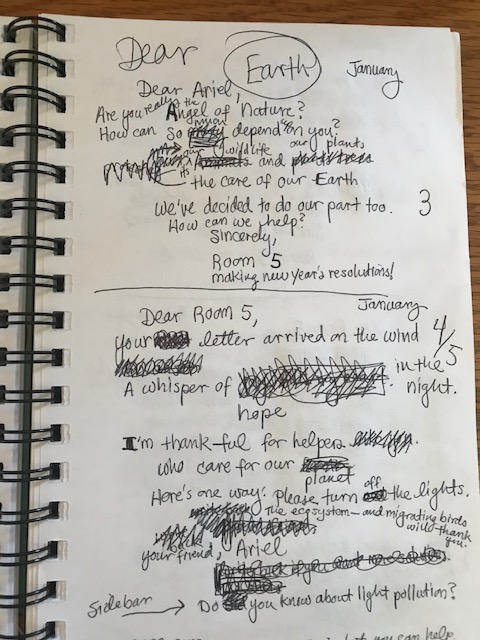 Dear Earth
January
Dear Ariel,
Are you really the Angel of Nature?
How can so depend on you?
our wildlife and our plants
its
the care of our Earth
we've decided to do our part too. 3
How can we help?
Sincerely,
Room 5
making new year's resolutions!
January
Dear Room 5,
your letter arrived on the wind 4/5
A whisper of in the night.
hope
I'm thank-ful for helpers
who care for our
planet
Here's one way: Please turn off the lights.
The ecosystem-and migrating birds will thank you.
your friend, Ariel
Sidebar → Do you know about light pollution?
you can help